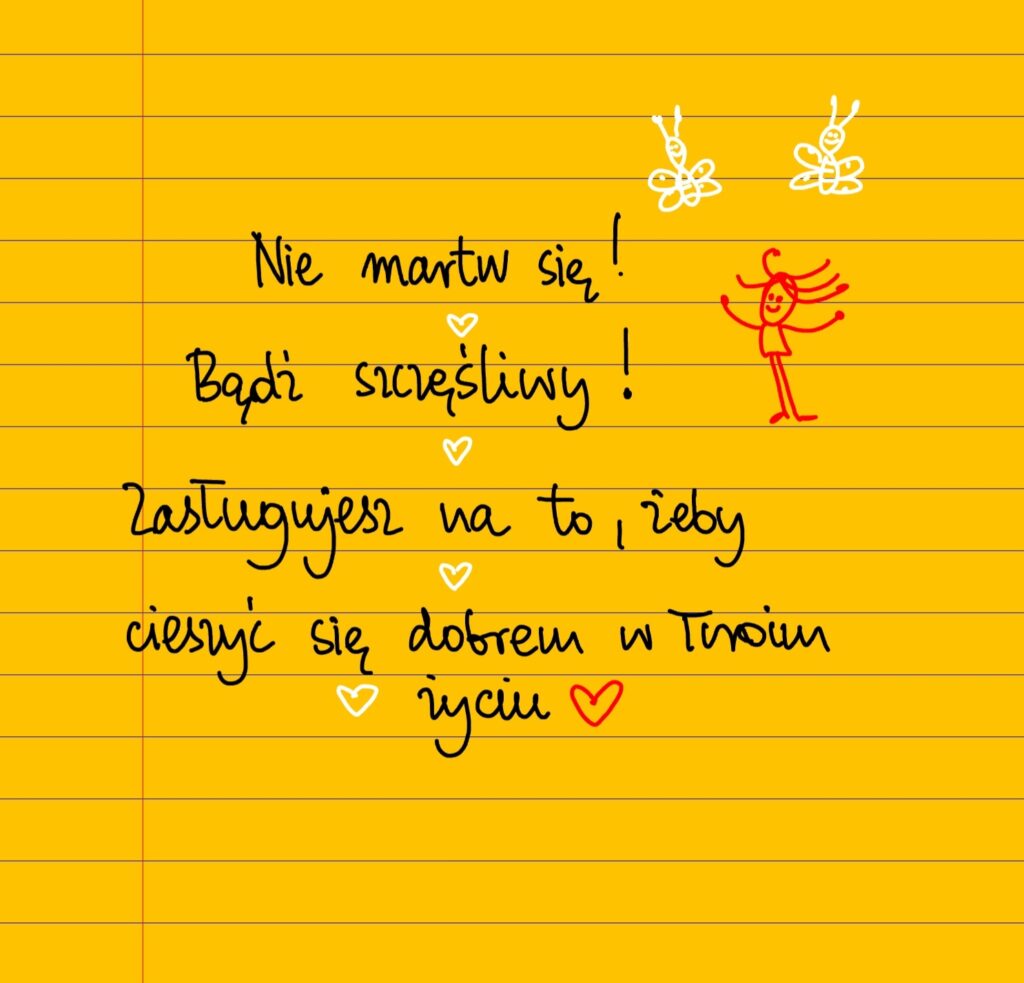 Nie martw się!
Bądź szczęśliwy!
Zasługujesz na to, żeby
cieszyć się dobrem w Twoim
życiu